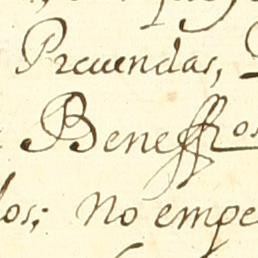 Preuendas,
Beneffos
los; no empe